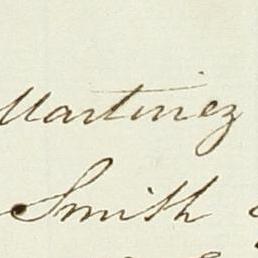 Martinez
Smith